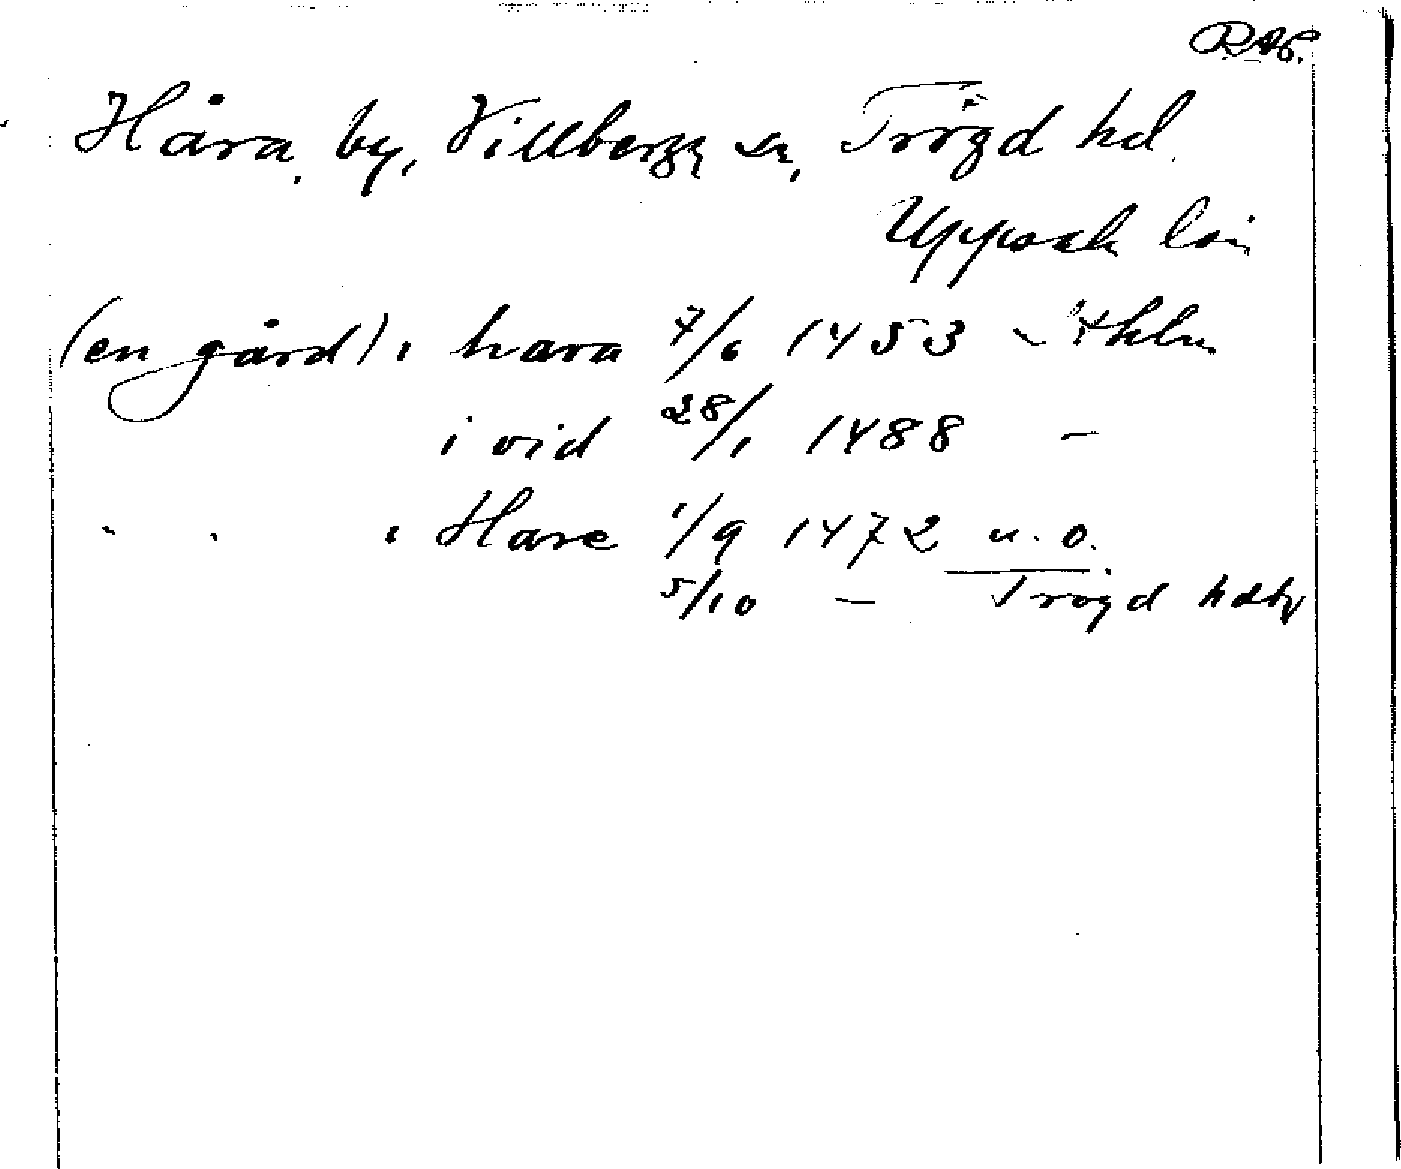 RAp.
Håra, by, Villberga sn, Trögd hd.
Uppsala län
(en gård) i hara 7/6 1453 Sthlm
i vid 28/1 1488 –
" " i Hare 1/9 1472 u. o.
5/10 – Trögd hdsbr